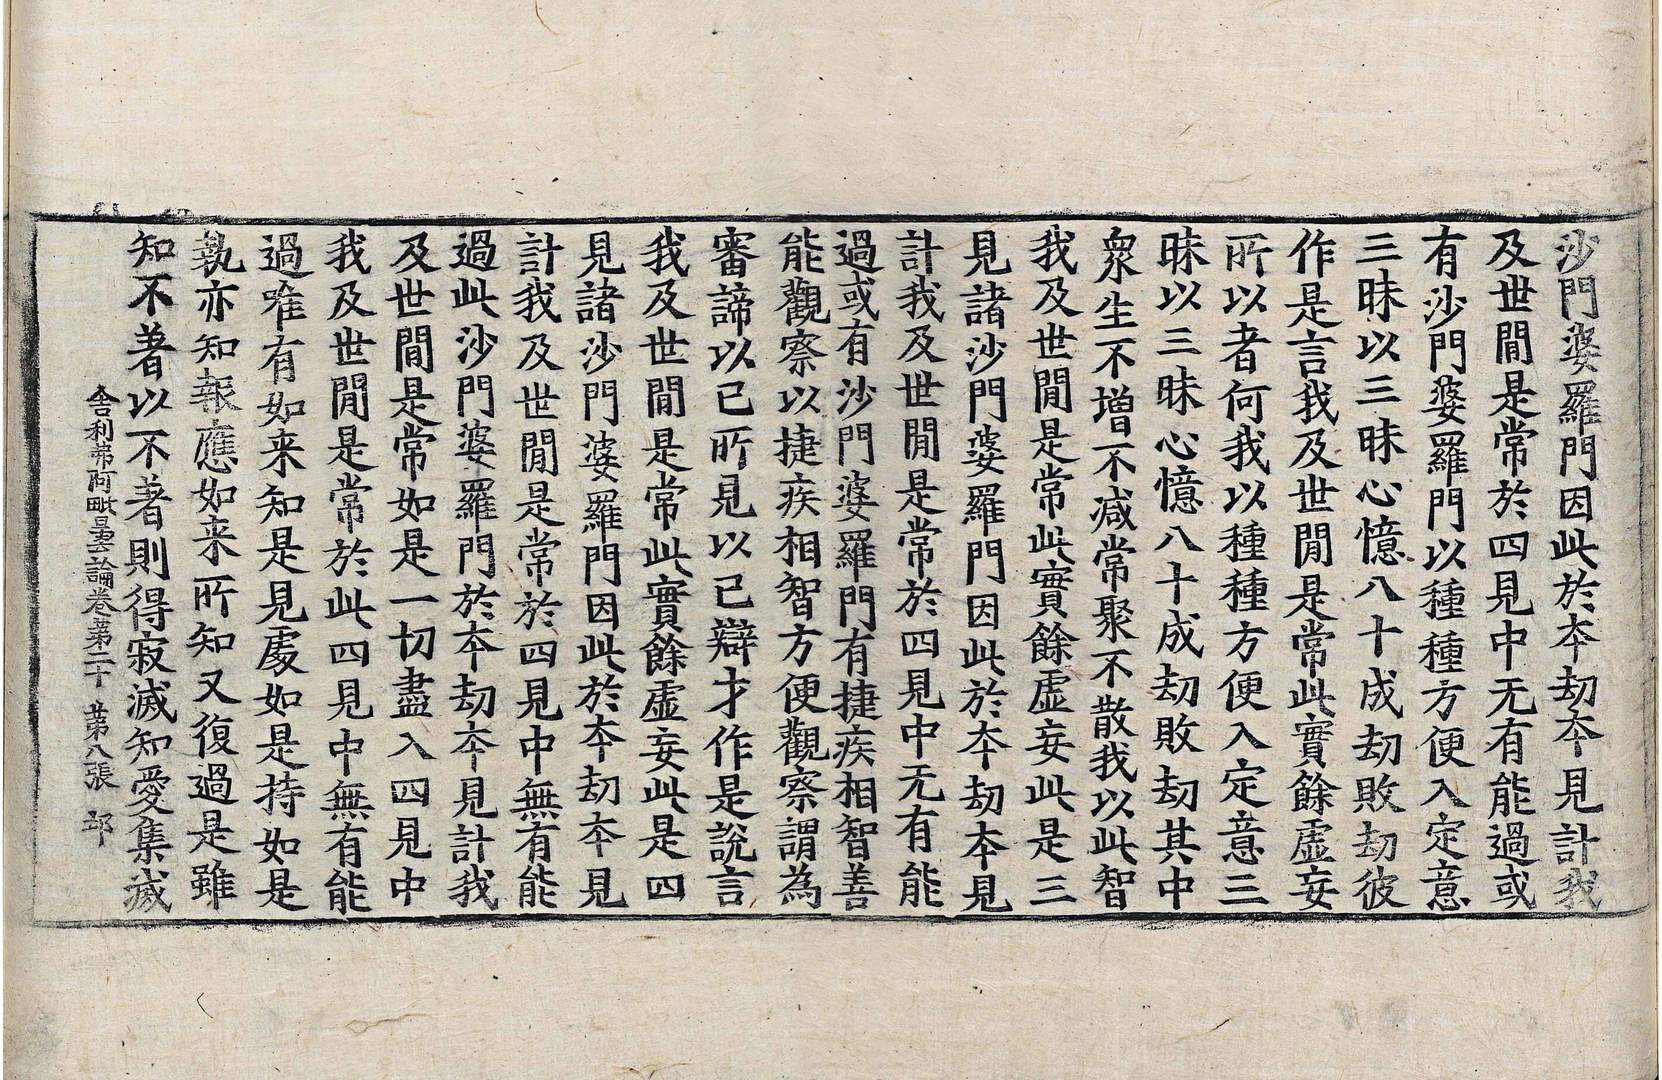 沙門婆羅門因此於夲劫夲見計我
及世閒是常於四見中无有能過或
有沙門婆羅門以種種方便入定意
三昧以三昧心憶八十成劫敗劫彼
作是言我及世閒是常此實餘虛妄
所以者何我以種種方便入定意三
昧以三昧心憶八十成劫敗劫其中
衆生不增不減常聚不散我以此智
我及世閒是常此實餘虛妄此是三
見諸沙門婆羅門因此於夲劫夲見
計我及世閒是常於四見中无有能
過或有沙門婆羅門有捷疾相智善
能觀察以捷疾相智方便觀察謂為
審諦以已所見以已辯才作是說言
我及世閒是常此實餘虛妄此是四
見諸沙門婆羅門因此於夲劫夲見
計我及世閒是常於四見中無有能
過此沙門婆羅門於夲劫夲見計我
及世閒是常如是一切盡入四見中
我及世閒是常於此四見中無有能
過唯有如来知是見處如是持如是
執亦知報應如来所知又復過是雖
知不著以不著則得寂滅知愛集滅
舍利弗阿毗曇論卷第二十 第八張 邙